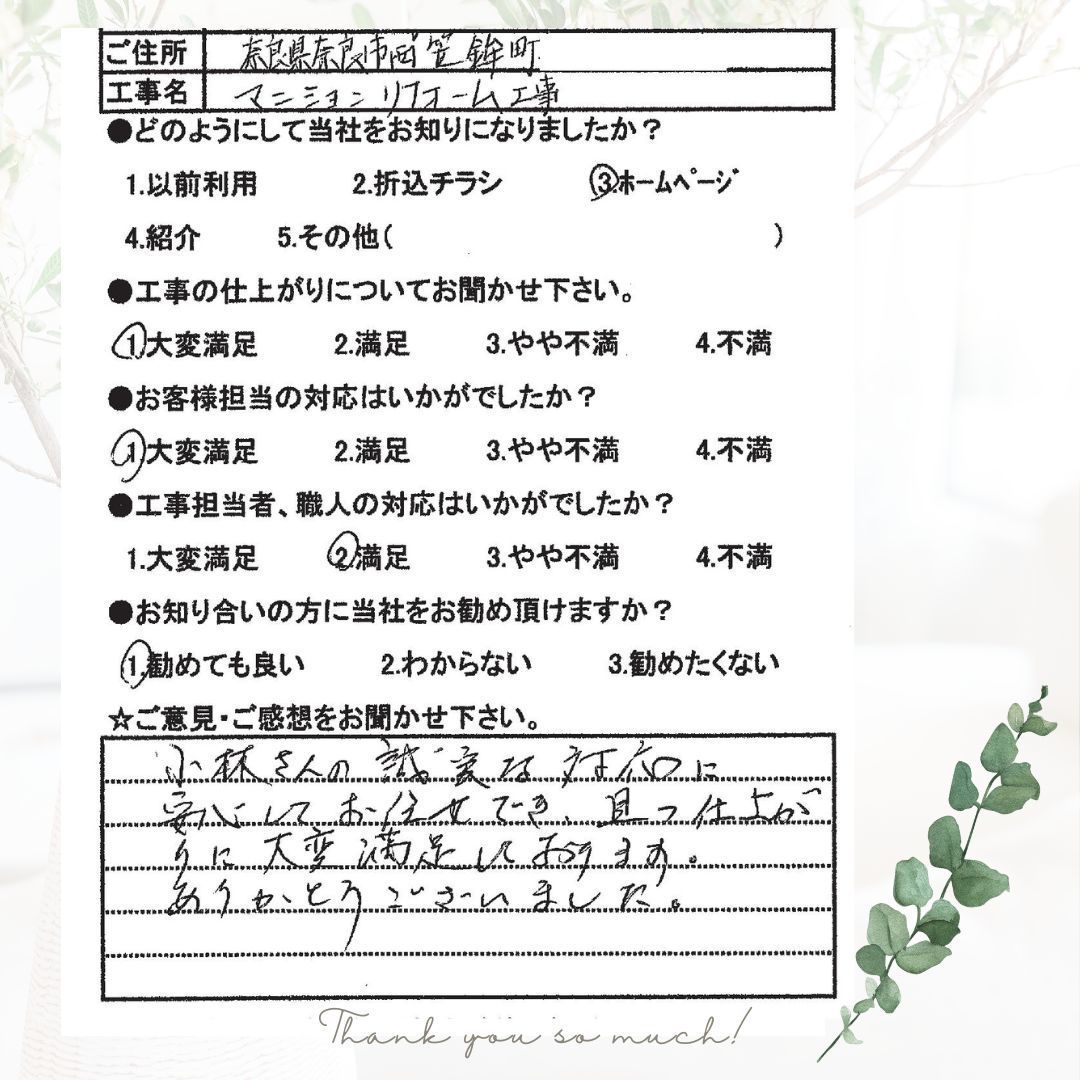 ご住所 奈良県奈良市西笹鉾町
工事名 マンションリフォーム工事
●どのようにして当社をお知りになりましたか？
1.以前利用 2.折込チラシ 3.ホームページ
4.紹介 5.その他( )
●工事の仕上がりについてお聞かせ下さい。
1.大変満足 2.満足 3.やや不満 4.不満
●お客様担当の対応はいかがでしたか？
1.大変満足 2.満足 3.やや不満 4.不満
●工事担当者、職人の対応はいかがでしたか？
1.大変満足 2.満足 3.やや不満 4.不満
●お知り合いの方に当社をお勧め頂けますか？
1.勧めても良い 2.わからない 3.勧めたくない
☆ご意見・ご感想をお聞かせ下さい。
小林さんの誠実な対応に
安心してお任せでき、且つ仕上が
りに大変満足しております。
ありがとうございました。
Thank you so much!